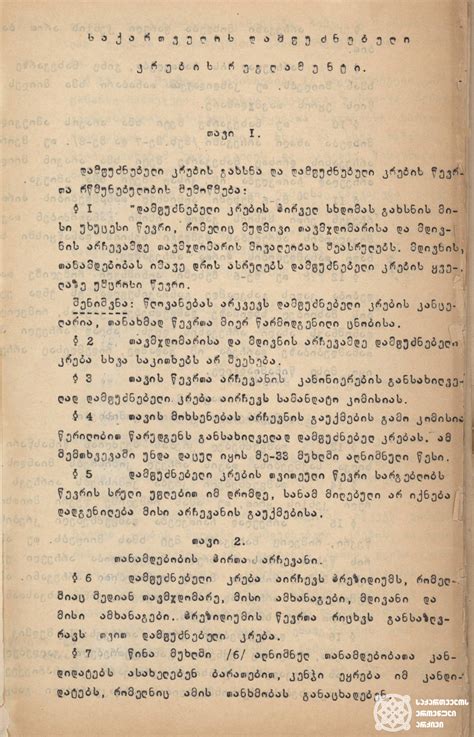 საქართველოს დამფუძნებელი
კრების რეგლამენტი.
თავი I.
დამფუძნებელი კრების გახსნა და დამფუძნებელი კრების წევრ-
თა რწმუნებულობის შემოწმება:
§ I "დამფუძნებელი კრების პირველ სხდომას გახსნის მი-
სი უხუცესი წევრი, რომელიც მუდმივი თავმჯდომარისა და მდივ-
ნის არჩევამდე თავმჯდომარის მოვალეობას შეასრულებს. მდივნის,
თანამდებობას იმავე დროს ასრულებს დამფუძნებელი კრების ყვე-
ლაზე უმცროსი წევრი.
შენიშვნა: წლოვანებას არკვევს დამფუძნებელი კრების კანცე-
ლარია, თანახმად წევრთა მიერ წარმოდგენილი ცნობისა.
§ 2 თავმჯდომარისა და მდივნის არჩევამდე დამფუძნებელი
კრება სხვა საკითხებს არ შეეხება.
§ 3 თავის წევრთა არჩევანის კანონიერების განსახილვე-
ლად დამფუძნებელი კრება აირჩევს სამანდატო კომისიას.
§ 4 თავის მოხსენებას არჩევნის გაუქმების გამო კომისია
წერილობით წარუდგენს განსახილველად დამფუძნებელ კრებას. ამ
შემთხვევაში უნდა დაცულ იყოს მე-33 მუხლში აღნიშნული წესი.
§ 5 დამფუძნებელი კრების თვითეული წევრი სარგებლობს
წევრის სრული უფლებით იმ დრომდე, სანამ მიღებული არ იქნება
დადგენილება მისი არჩევანის გაუქმებისა.
თავი 2.
თანამდებობის პირთა არჩევანი.
§ 6 დამფუძნებელი კრება აირჩევს პრეზიდიუმს, რომელ-
შიაც შედიან თავმჯდომარე, მისი ამხანაგები, მდივანი და
მისი ამხანაგები. პრეზიდიუმის წევრთა რიცხვს განსაზღვ-
რავს თვით დამფუძნებელი კრება.
§ 7 წინა მუხლში /6/ აღნიშნულ თანამდებობათა კან-
დიდატებს ასახელებენ ბარათებით, კენჭი ეყრება იმ კანდი-
დატებს, რომელნიც ამის თანხმობას განაცხადებენ.
საქართველოს
ეროვნული
არქივი